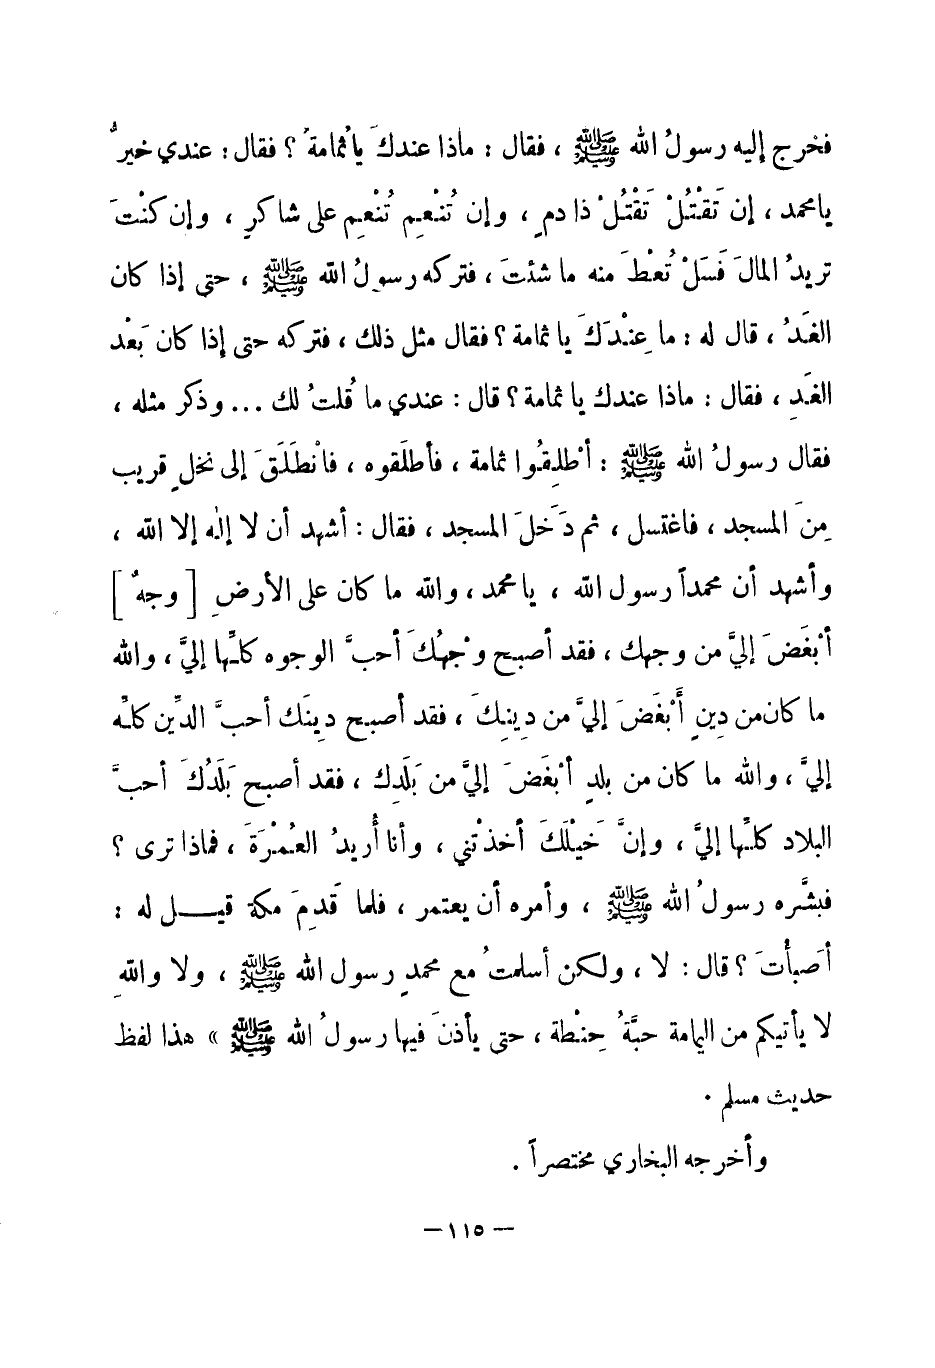 فخرج إليه رسولُ الله ﷺ ، فقال : ماذا عندكَ يا ثمامةُ ؟ فقال : عندي خيرٌ
يا محمد ، إن تَقْتُلْ تَقْتُلْ ذا دمٍ ، وإن تُنْعِم تُنْعِم على شاكرٍ ، وإن كنْتَ
تريدُ المالَ فَسَلْ تُعْطَ منه ما شئتَ ، فتركه رسولُ الله ﷺ ، حتى إذا كان
الغَدُ ، قال له : ما عِنْدَكَ يا ثمامة ؟ فقال مثل ذلك ، فتركه حتى إذا كان بَعْد
الغَدِ ، فقال : ماذا عندك يا ثمامة ؟ قال : عندي ما قُلتُ لك ... وذكر مثله ،
فقال رسولُ الله ﷺ : أطلِقُوا ثمامة ، فأطلَقوه ، فانْطَلَقَ إلى نخلٍ قريب
مِنَ المسجد ، فاغتسل ، ثم دَخَلَ المسجد ، فقال : أشهد أن لا إله إلا الله ،
وأشهد أن محمداً رسول الله ، يا محمد ، والله ما كان على الأرضِ [ وجهٌ ]
أبْغَضَ إليَّ من وجهك ، فقد أصبح وجْهُكَ أحبَّ الوجوه كلِّها إليَّ ، والله
ما كان من دِينٍ أَبْغَضَ إليَّ من دِينِكَ ، فقد أصبح دِينَك أحبَّ الدِّين كلِّه
إليَّ ، والله ما كان من بلدٍ أبْغَضَ إليَّ من بَلَدِك ، فقد أصبح بَلَدُكَ أحبَّ
البلاد كلِّها إليَّ ، وإنَّ خَيْلَكَ أخذتْني ، وأنا أُريدُ العُمْرَةَ ، فماذا ترى ؟
فبشَّره رسولُ الله ﷺ ، وأمره أن يعتمر ، فلما قَدِمَ مكة قيل له :
أصَبأْتَ ؟ قال : لا ، ولكن أسلمتُ مع محمدٍ رسول الله ﷺ ، ولا واللهِ
لا يأتيكم من اليمامة حبَّةُ حِنْطة ، حتى يأذنَ فيها رسولُ الله ﷺ » هذا لفظ
حديث مسلم .
وأخرجه البخاري مختصراً .
— ١١٥ —